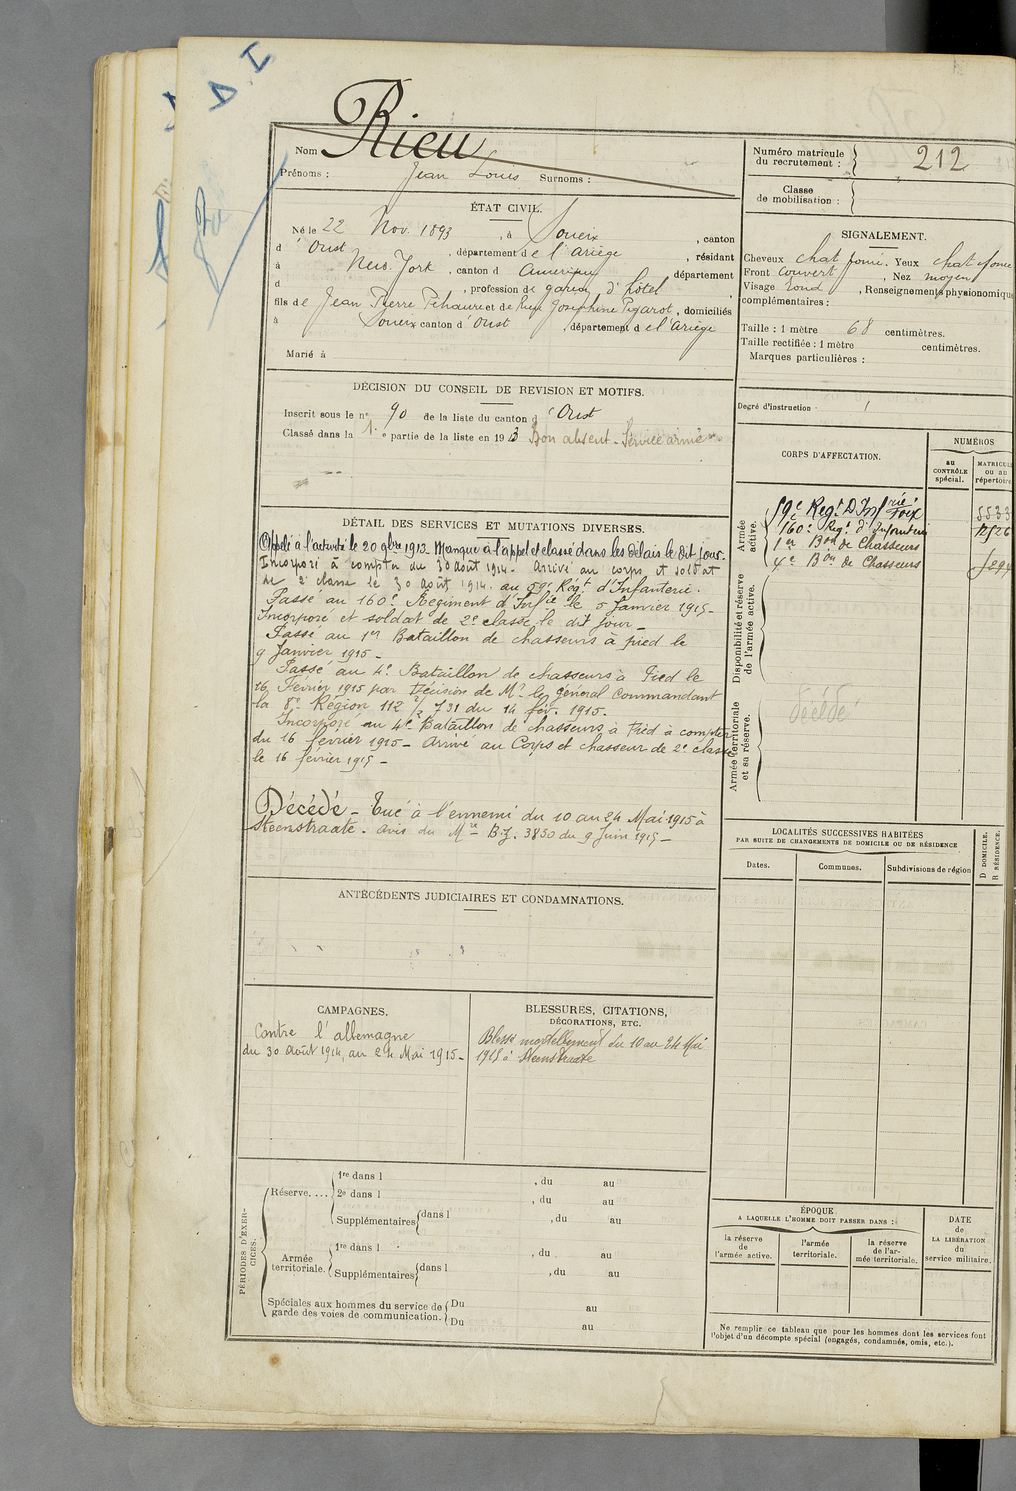 D. I
Nom Rieu
Prénoms : Jean Louis Surnoms :
ÉTAT CIVIL.
Né le 22 Nov. 1893, à Soueix, canton
d'Oust, département de l'Ariège, résidant
à New-York, canton d Amérique département
d , profession de garçon d'hôtel
fils de Jean Pierre et de Rieu Joséphine, domiciliés
à Soueix canton d'Oust, département de l'Ariège
Marié à
DÉCISION DU CONSEIL DE REVISION ET MOTIFS.
Inscrit sous le n° 90 de la liste du canton d'Oust
Classé dans la 1. e partie de la liste en 1913 Bon absent - Service armé
DÉTAIL DES SERVICES ET MUTATIONS DIVERSES.
Appelé à l'activité le 20 9bre 1913. Manque à l'appel et classé dans les délais le dit jour.
Incorporé à compter du 30 août 1914. Arrivé au corps et soldat
de 2e classe le 30 août 1914. au 59e Régt d'Infanterie.
Passé au 160e Régiment d'Infie le 5 Janvier 1915-
Incorporé et soldat de 2e classe le dit jour-
Passé au 1er Bataillon de chasseurs à pied le
9 Janvier 1915-
Passé au 4e Bataillon de chasseurs à Pied le
16 Février 1915 par décision de Mr le général Commandant
la 8e Région 112 2/2 731 du 14 fév. 1915.
Incorporé au 4e Bataillon de chasseurs à Pied à compter
du 16 février 1915- Arrivé au Corps et chasseur de 2e classe
le 16 février 1915-
Décédé - Tué à l'ennemi du 10 au 24 Mai 1915 à
Steenstraate. avis du Mre B.J. 3830 du 9 Juin 1915-
ANTÉCÉDENTS JUDICIAIRES ET CONDAMNATIONS.
CAMPAGNES.
Contre l'allemagne
du 30 août 1914, au 24 Mai 1915-
BLESSURES, CITATIONS,
DÉCORATIONS, ETC.
Blessé mortellement du 10 au 24 Mai
1915 à Steenstraate
PÉRIODES D'EXER-
CICES.
Réserve....
1re dans l , du au
2e dans l , du au
Supplémentaires dans l , du au
Armée
territoriale.
1re dans l , du au
Supplémentaires dans l , du au
Spéciales aux hommes du service de
garde des voies de communication.
Du au
Du au
Numéro matricule
du recrutement : 212
Classe
de mobilisation :
SIGNALEMENT.
Cheveux chat foncé. Yeux chat foncé
Front couvert, Nez moyen
Visage rond, Renseignements physionomique
complémentaires :
Taille : 1 mètre 68 centimètres.
Taille rectifiée : 1 mètre centimètres.
Marques particulières :
Degré d'instruction 1
CORPS D'AFFECTATION.
NUMÉROS
au
CONTRÔLE
spécial.
MATRICUL
ou au
répertoire
Armée
active.
59e Regt D'Infrie Foix 5533
160e Regt d'Infanterie
1er Bon de Chasseurs
4e Bon de Chasseurs
Disponibilité et réserve
de l'armée active.
Armée territoriale
et sa réserve.
Décédé
LOCALITÉS SUCCESSIVES HABITÉES
PAR SUITE DE CHANGEMENTS DE DOMICILE OU DE RÉSIDENCE
Dates.
Communes.
Subdivisions de région
D DOMICILE.
R RÉSIDENCE.
ÉPOQUE
A LAQUELLE L'HOMME DOIT PASSER DANS :
la réserve
de
l'armée active.
l'armée
territoriale.
la réserve
de l'ar-
mée territoriale.
DATE
de
LA LIBÉRATION
du
service militaire.
Ne remplir ce tableau que pour les hommes dont les services font
l'objet d'un décompte spécial (engagés, condamnés, omis, etc.).